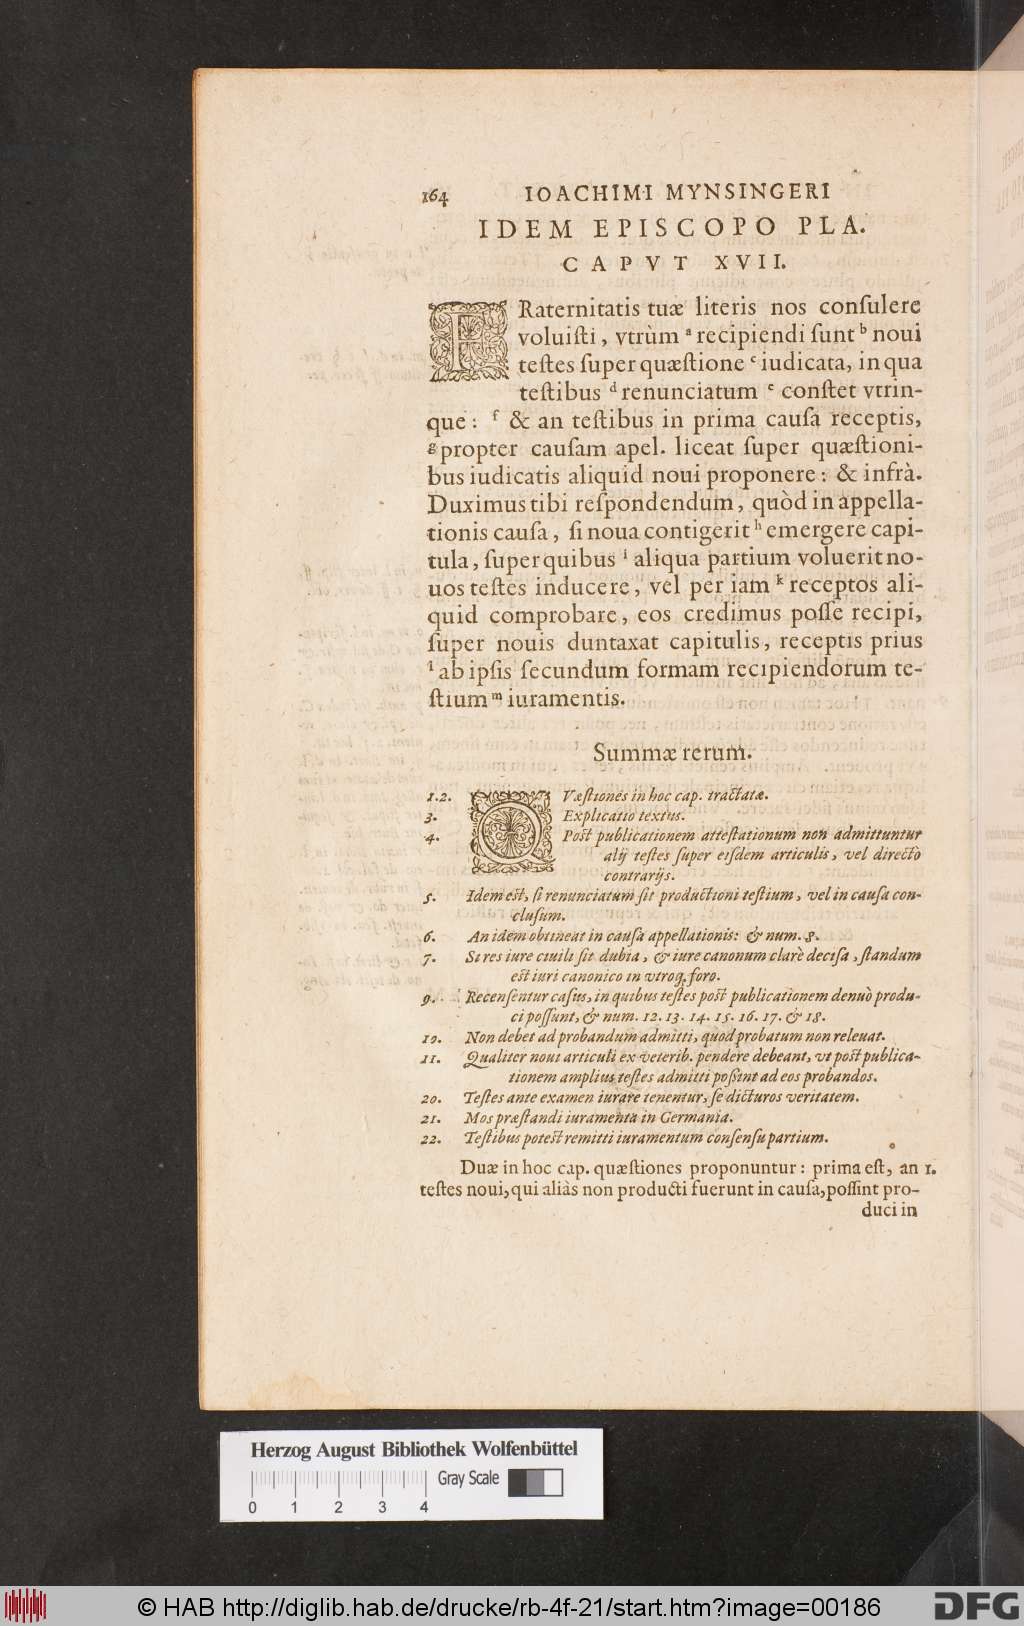 164 IOACHIMI MYNSINGERI
IDEM EPISCOPO PLA.
CAPVT XVII.
FRaternitatis tuæ literis nos conſulere
voluiſti, vtrùm ᵃ recipiendi ſunt ᵇ noui
teſtes ſuper quæſtione ᶜ iudicata, in qua
teſtibus ᵈ renunciatum ᵉ conſtet vtrin-
que: ᶠ & an teſtibus in prima cauſa receptis,
ᵍ propter cauſam apel. liceat ſuper quæſtioni-
bus iudicatis aliquid noui proponere: & infrà.
Duximus tibi reſpondendum, quòd in appella-
tionis cauſa, ſi noua contigerit ʰ emergere capi-
tula, ſuper quibus ⁱ aliqua partium voluerit no-
uos teſtes inducere, vel per iam ᵏ receptos ali-
quid comprobare, eos credimus poſſe recipi,
ſuper nouis duntaxat capitulis, receptis prius
ˡ ab ipſis ſecundum formam recipiendorum te-
ſtium ᵐ iuramentis.
Summæ rerum.
1.2. QVæſtiones in hoc cap. tractatæ.
3. Explicatio textus.
4. Poſt publicationem atteſtationum non admittuntur
alij teſtes ſuper eiſdem articulis, vel directò
contrarijs.
5. Idem eſt, ſi renunciatum ſit productioni teſtium, vel in cauſa con-
cluſum.
6. An idem obtineat in cauſa appellationis: & num. 8.
7. Si res iure ciuili ſit dubia, & iure canonum clarè deciſa, ſtandum
eſt iuri canonico in vtroq. foro.
9. Recenſentur caſus, in quibus teſtes poſt publicationem denuò produ-
ci poſſunt, & num. 12. 13. 14. 15. 16. 17. & 18.
10. Non debet ad probandum admitti, quòd probatum non releuat.
11. Qualiter noui articuli ex veterib. pendere debeant, vt poſt publica-
tionem amplius teſtes admitti poßint ad eos probandos.
20. Teſtes ante examen iurare tenentur, ſe dicturos veritatem.
21. Mos præſtandi iuramenta in Germania.
22. Teſtibus poteſt remitti iuramentum conſenſu partium.
Duæ in hoc cap. quæſtiones proponuntur: prima eſt, an 1.
teſtes noui, qui aliàs non producti fuerunt in cauſa, poſſint pro-
duci in
Herzog August Bibliothek Wolfenbüttel
Gray Scale
0 1 2 3 4
© HAB http://diglib.hab.de/drucke/rb-4f-21/start.htm?image=00186
DFG